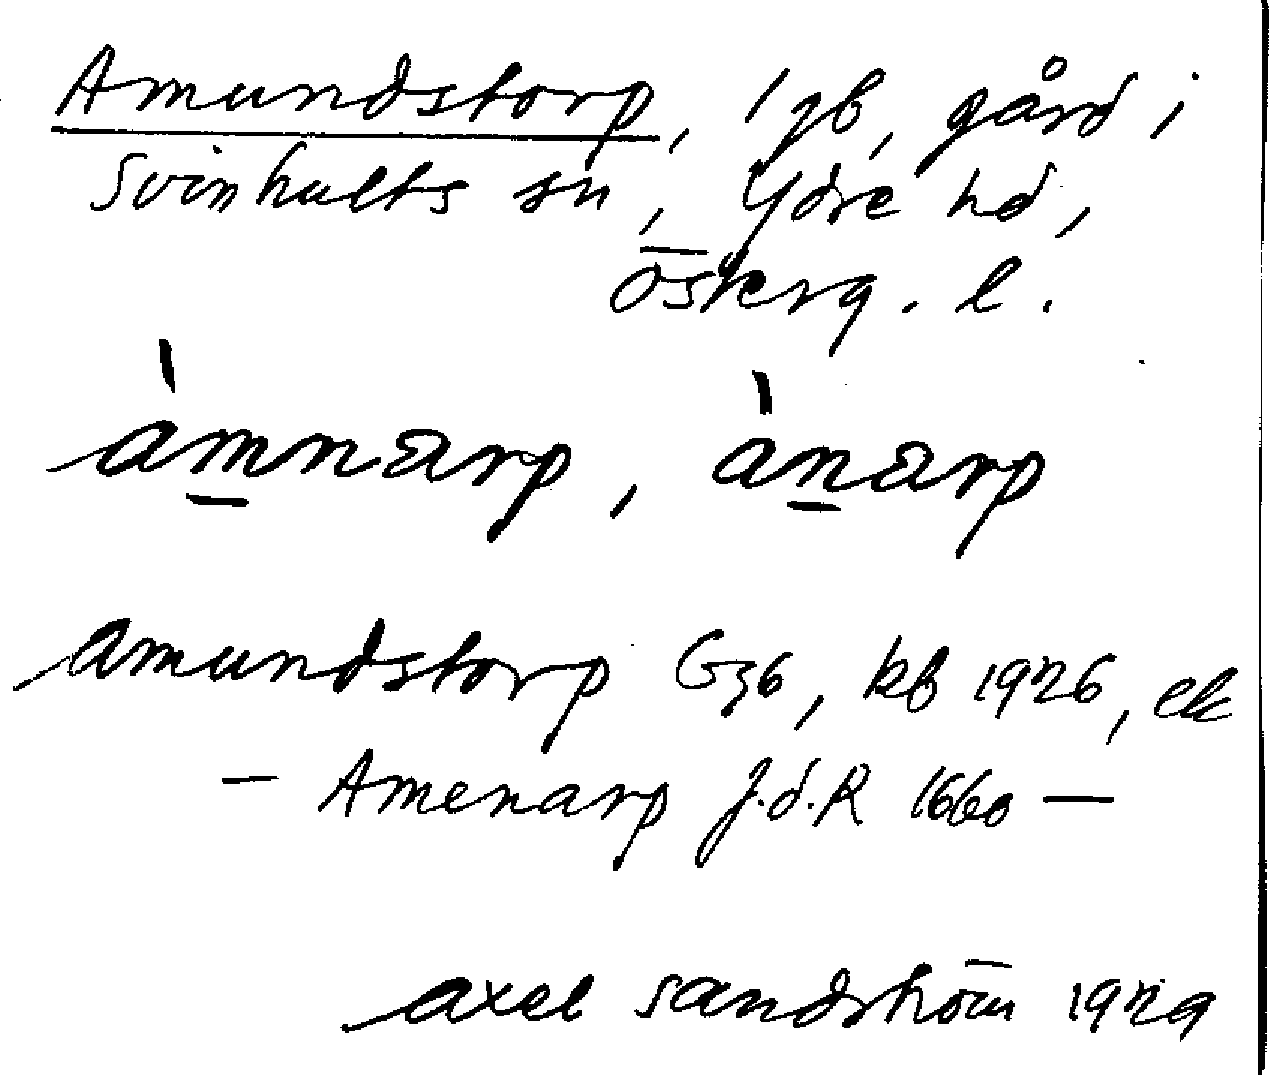 Amundstorp, 1 gb, gård i
Svinhults sn, Ydre hd,
Österg. l.
àmnarp, ànarp
Amundstorp G36, kb 1926, ek
— Amenarp J.d.R 1660 —
Axel Sandström 1929